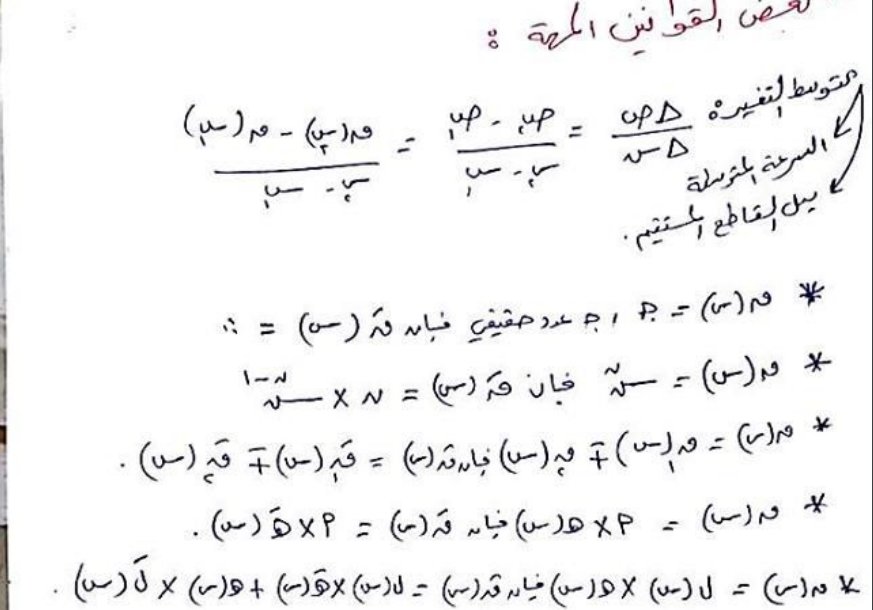 بعض القوانين المهمة :
متوسط التغير : Δص / Δس = (ص٢ - ص١) / (س٢ - س١) = (ق(س٢) - ق(س١)) / (س٢ - س١)
السرعة المتوسطة
ميل القاطع المستقيم .
* ق(س) = جـ ، جـ عدد حقيقي فإن قَ(س) = ٠
* ق(س) = س^ن فإن قَ(س) = ن × س^(ن-١)
* ق(س) = ق١(س) ∓ ق٢(س) فإن قَ(س) = قَ١(س) ∓ قَ٢(س) .
* ق(س) = P × هـ(س) فإن قَ(س) = P × هـَ(س) .
* ق(س) = ل(س) × هـ(س) فإن قَ(س) = ل(س) × هـَ(س) + هـ(س) × لَ(س) .